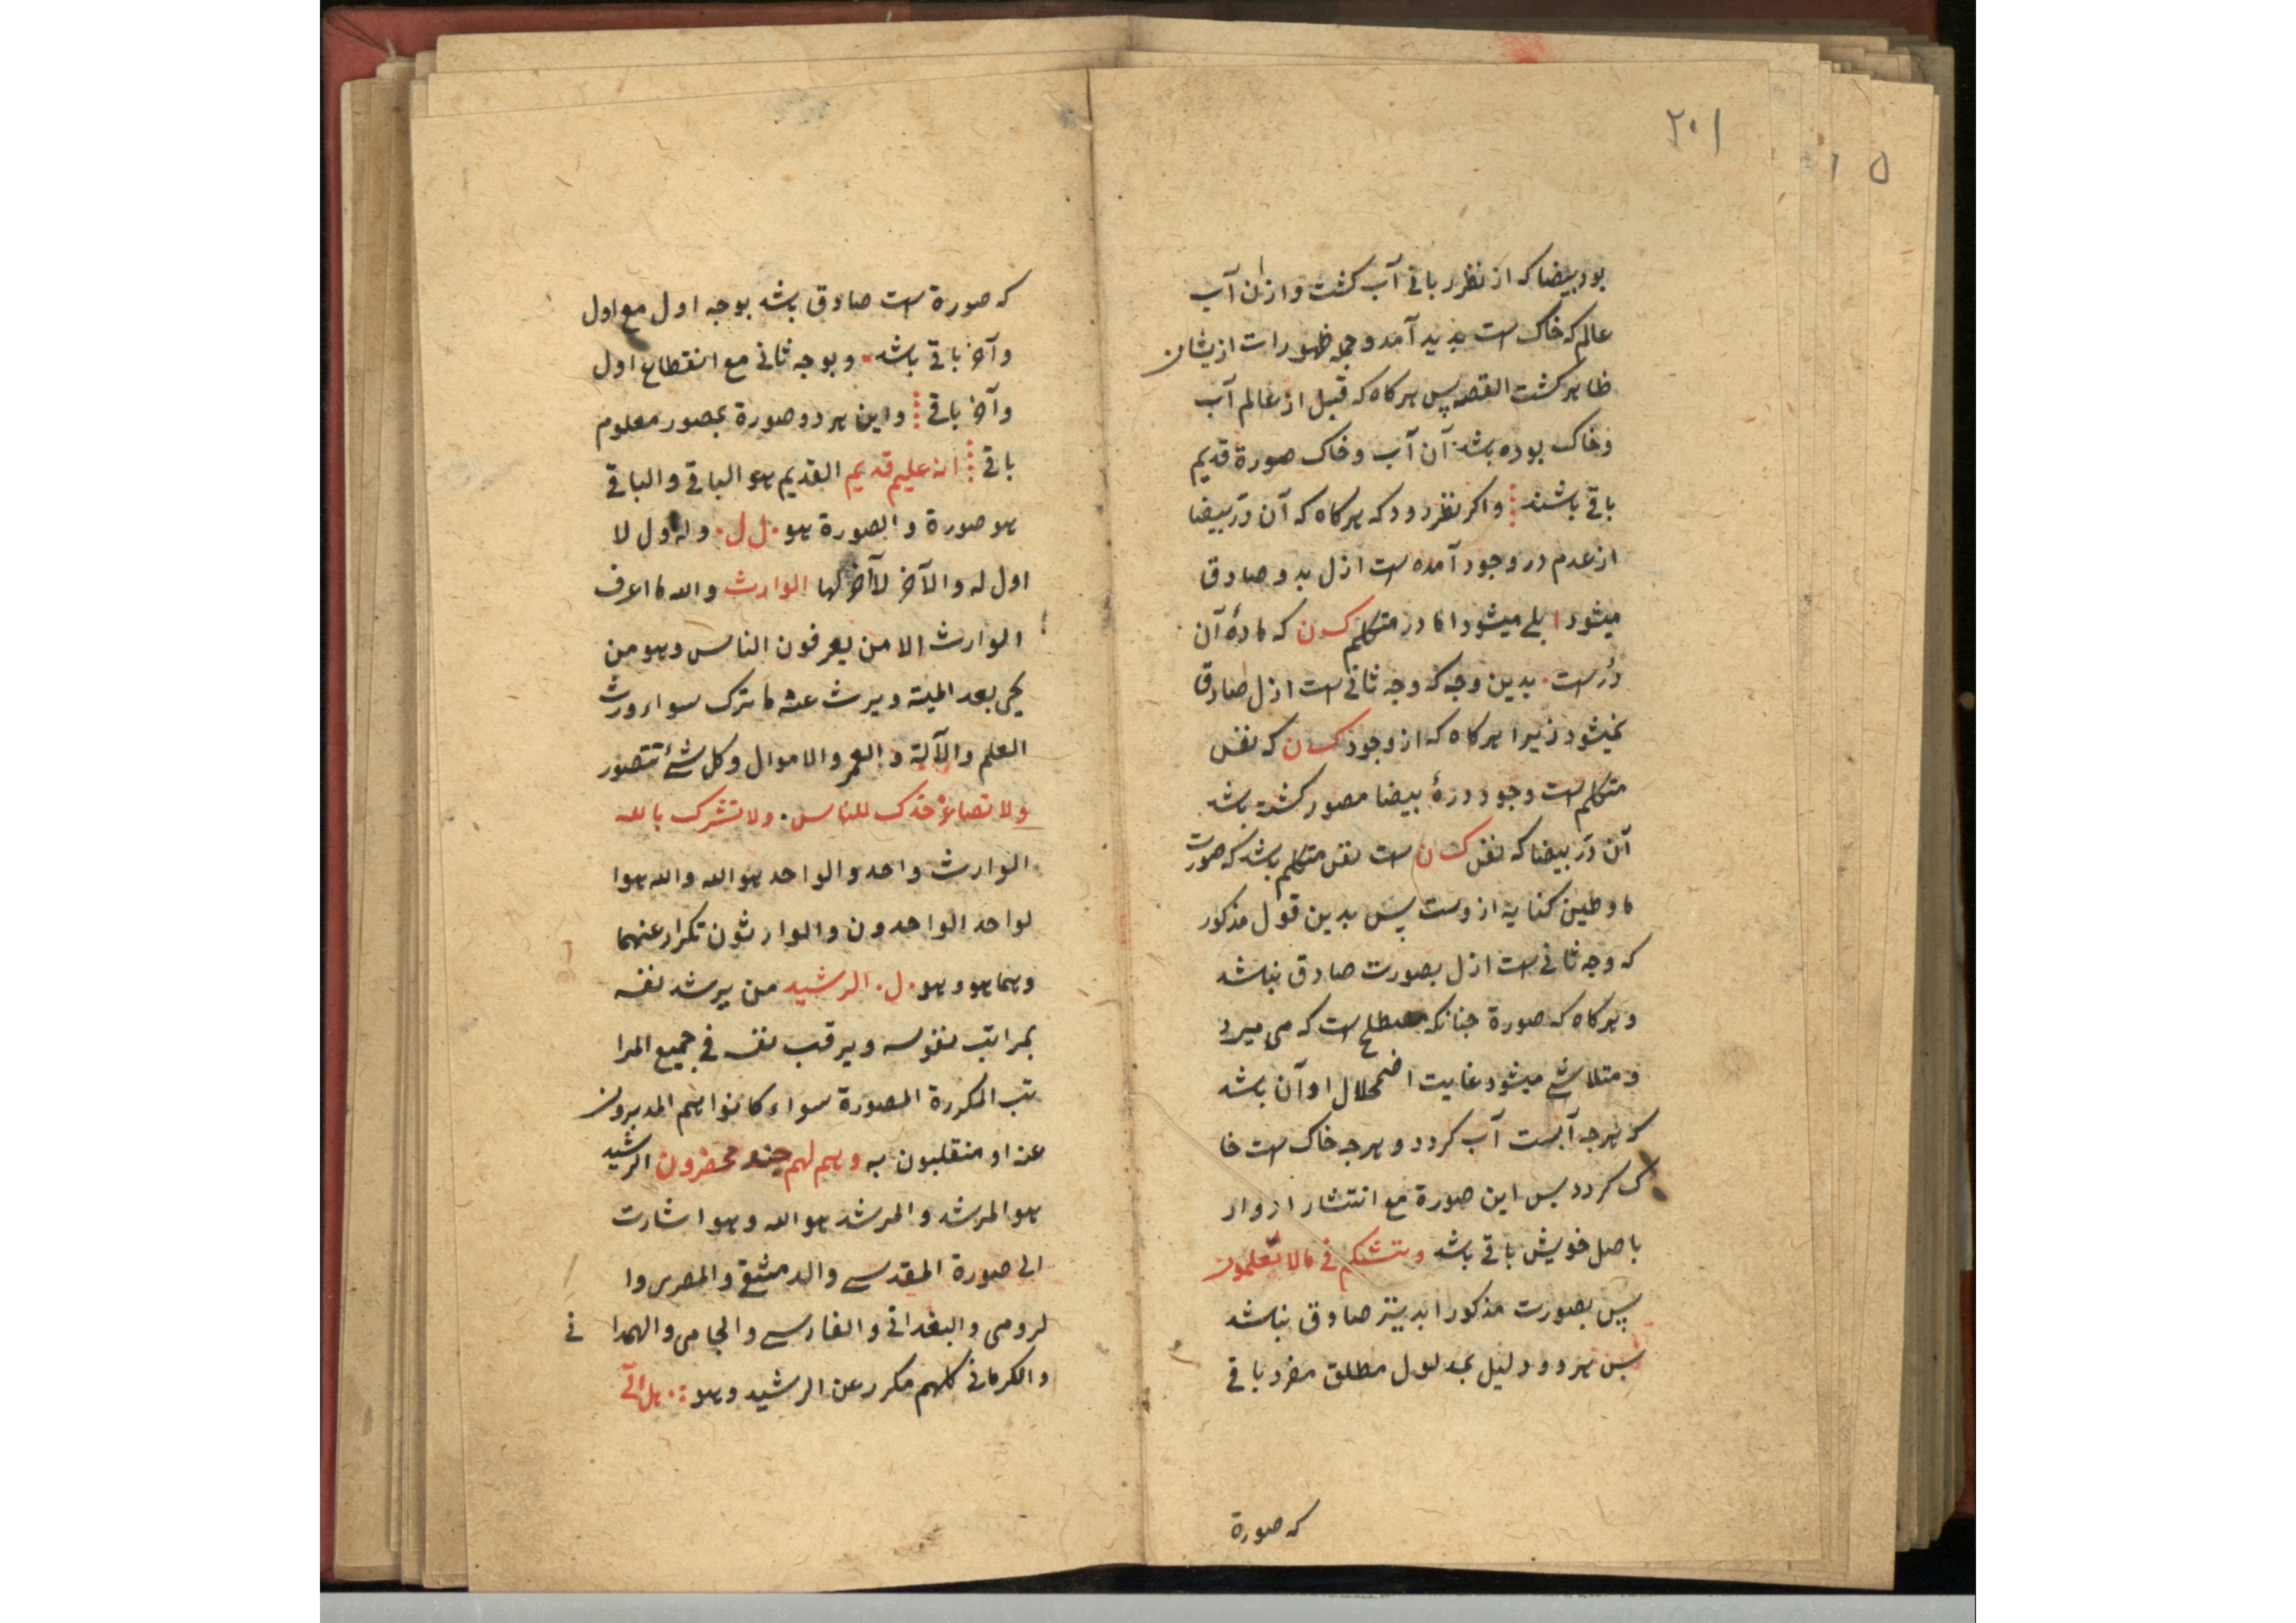 ۲۰۱
۱ ۵
بود بیضا که از نظر ربانی آب کشت و ازان آب
عالم که خاک است بدید آمد و جمله ظهورات ازیشان
ظاهر کشت القصه پس هرکاه که قبل از عالم آب
و خاک بوده باشد آن آب و خاک صورة قدیم
باقی باشند و اکر نظر رود که هرکاه که آن در بیضا
از عدم در وجود آمده است ازل بدو صادق
میشود بلی میشود اما در متکلم ک س ن که مادهٔ آن
در است بدین وجه که وجه ثانی است ازل صادق
نمیشود زیرا هرکاه که از وجود ک س ن که نفس
متکلم است وجود درهٔ بیضا مصور کشته باشد
آن در بیضا که نفس ک س ن است نفس متکلم باشد که صورت
ما و طین کنایه ازوست پس بدین قول مذکور
که وجه ثانی است ازل بصورت صادق نباشد
و هرکاه که صورة جنانکه مصطلح است که می میرد
و متلاشی میشود غایت اضمحلال او آن باشد
که هرجه آبست آب کردد و هرجه خاک است خا
ک کردد پس این صورة مع انتشار ادوار
باصل خویش باقی باشد و ننشئکم فی ما لا تعلمون
پس بصورت مذکور ابد نیز صادق نباشد
پس هر دو دلیل بمدلول مطلق مفرد باقی
که صورة
که صورة است صادق باشد بوجه اول مع اول
و آخر باقی باشد و بوجه ثانی مع انقطاع اول
و آخر باقی و این هر دو صورة بمصور معلوم
باقی انه علیم قدیم القدیم هو الباقی و الباقی
هو صورة و الصورة هو ل ل و له اول لا
اول له و الآخر لا آخر لها الوارث و الله ما اعرف
الوارث الا من یعرفون الناس و هو من
یحیی بعد المیتة و یرث عنه ما ترک سواء ورث
العلم و الآلة و العمر و الاموال و کل شیٔ تتصور
ولا تصاعر خدک للناس ولا تشرک بالله
الوارث واحد و الواحد هو الله و الله هو ا
لواحد الواحدون و الوارثون تکرار عنهما
و هما هو و هو ل الرشید من یرشد نفسه
بمراتب نفوسه و یرقب نفسه فی جمیع المرا
تب المکررة المصورة سواء کانوا هم المدبرون
عنه او منقلبون به و هم لهم جند محضرون الرشید
هو المرشد و المرشد هو الله و هو اشارت
الی صورة المقدسی و الدمشقی و المصری و ا
لرومی و البغدانی و الفارسی و الجامی و الهمدا نی
و الکرمانی کلهم مکرر عن الرشید و هو هل اتی